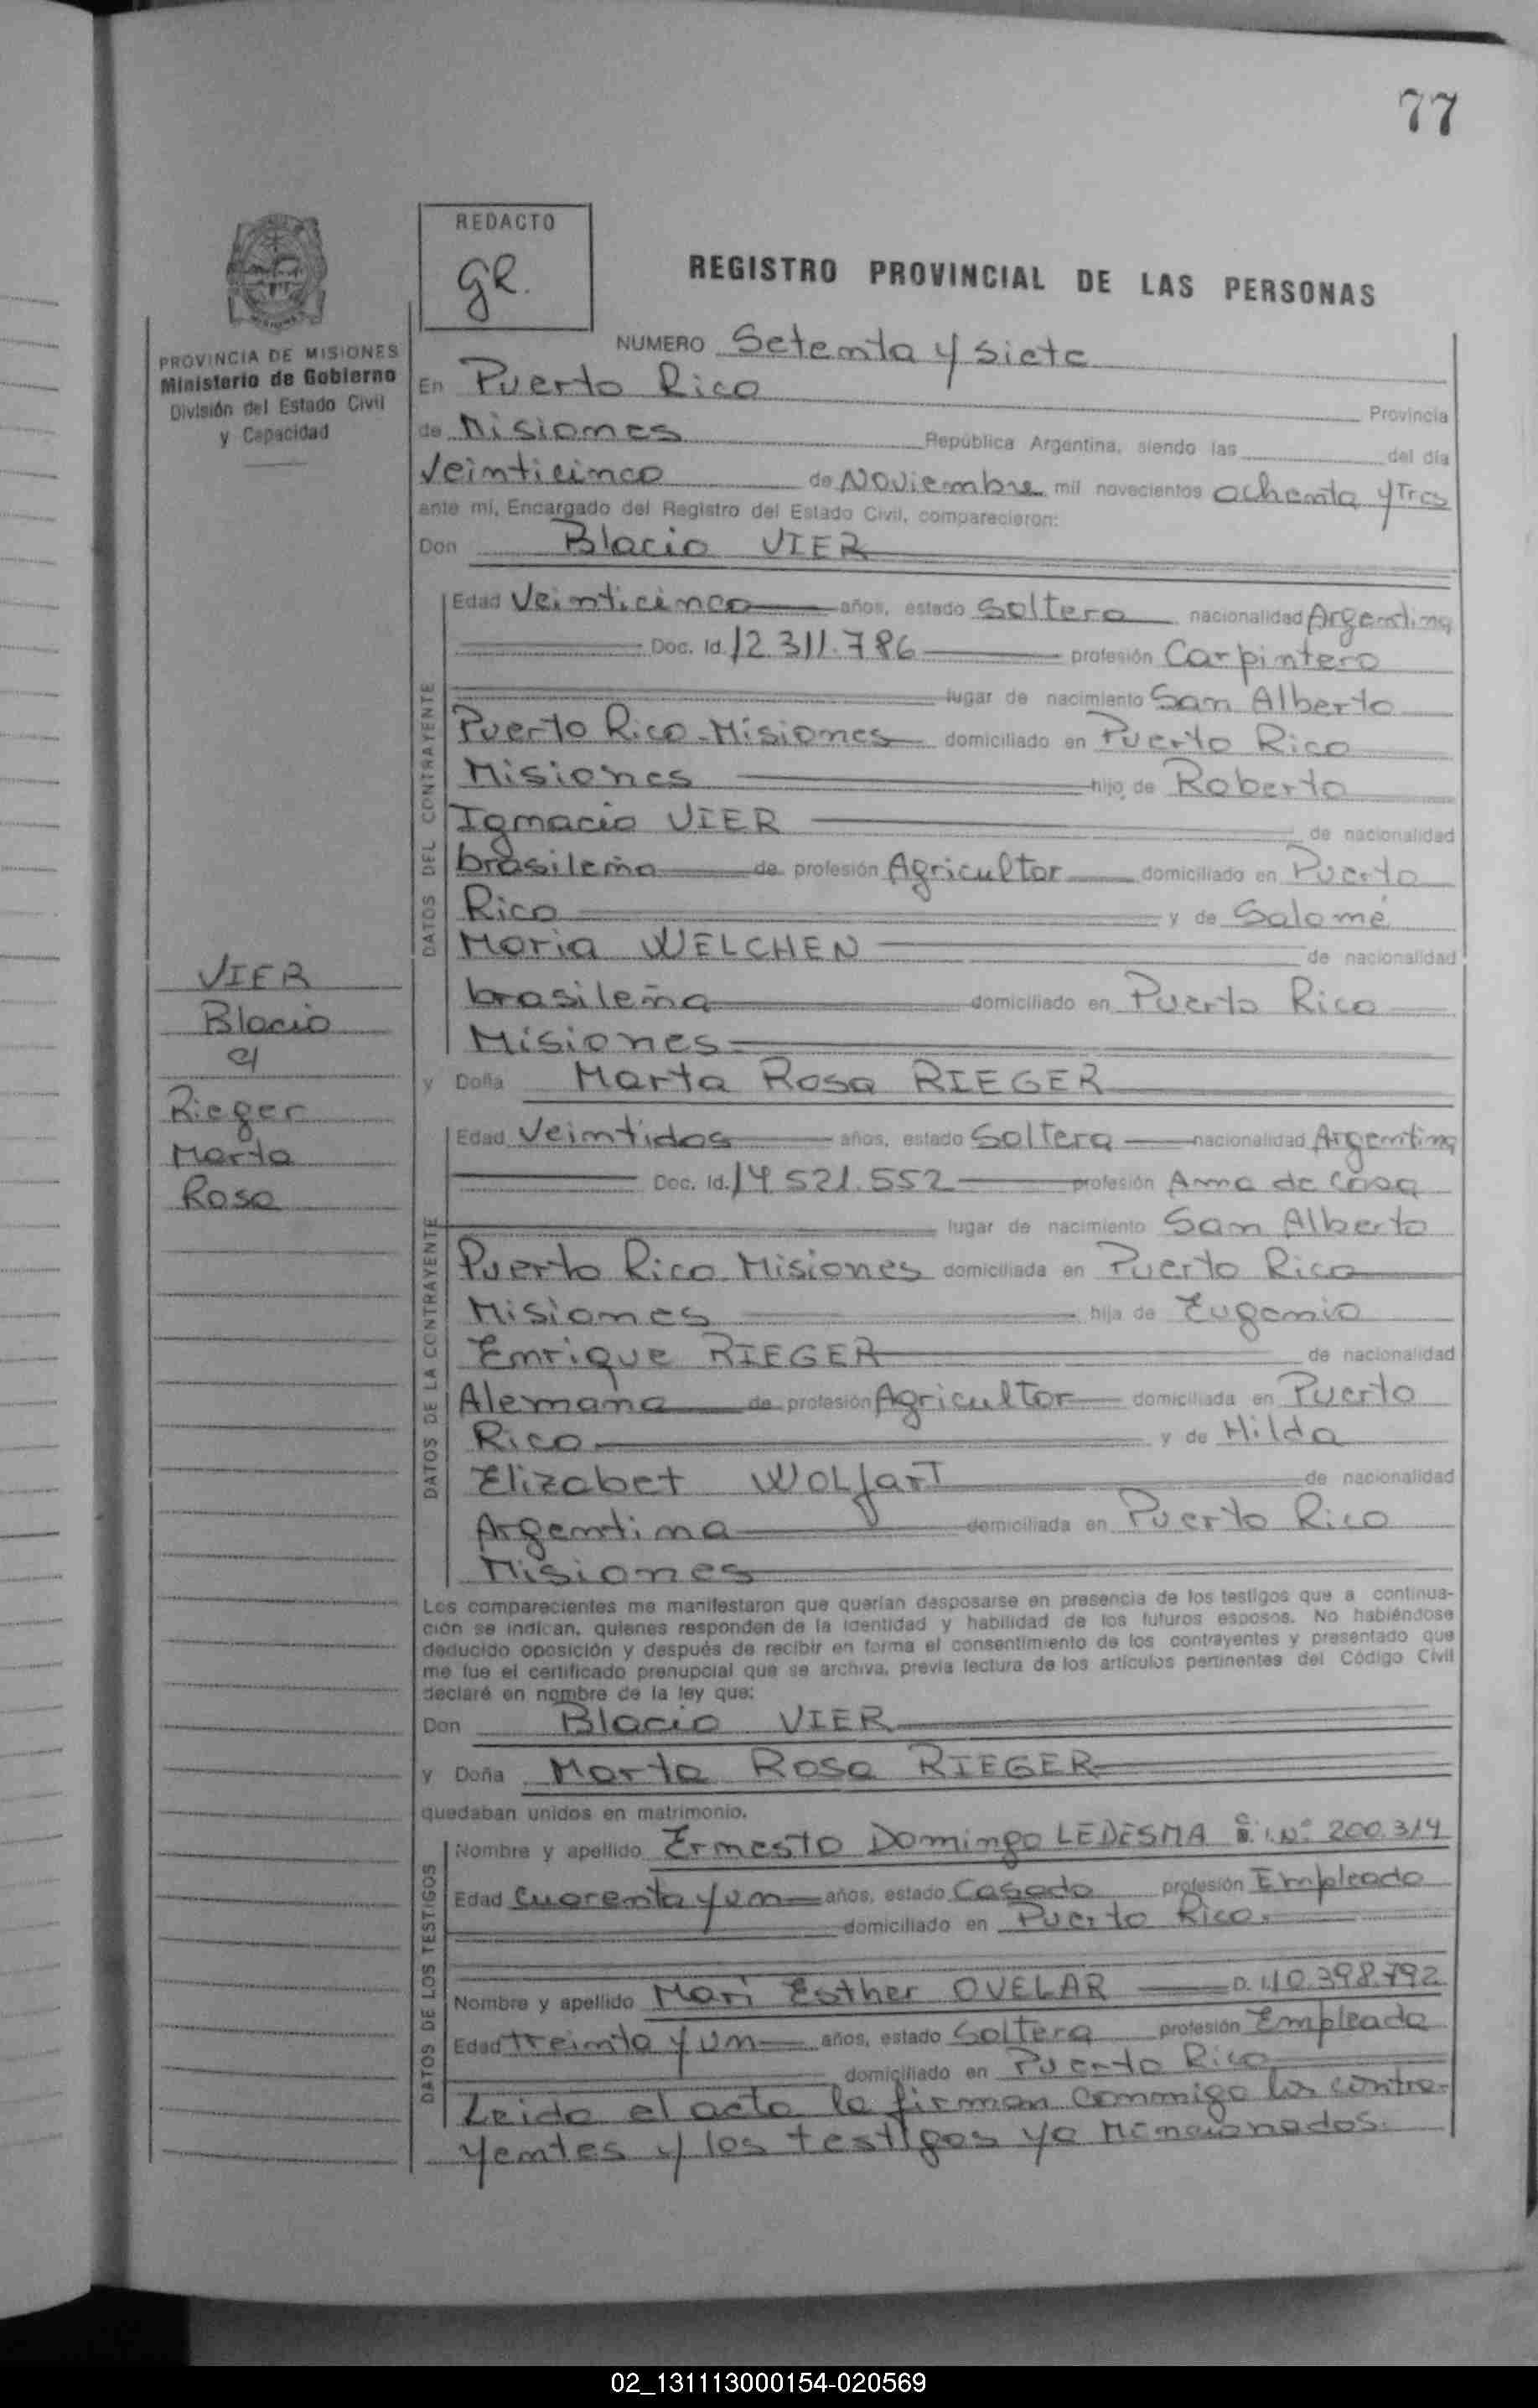 77
REDACTO
gR.
REGISTRO PROVINCIAL DE LAS PERSONAS
PROVINCIA DE MISIONES
Ministerio de Gobierno
División del Estado Civil
y Capacidad
NUMERO Setenta y siete
En Puerto Rico Provincia
de Misiones República Argentina, siendo las del día
Veinticinco de Noviembre mil novecientos ochenta y Tres
ante mi, Encargado del Registro del Estado Civil, comparecieron:
Don Blacio VIER
DATOS DEL CONTRAYENTE
Edad Veinticinco años, estado Soltero nacionalidad Argentina
Doc. Id. 12.311.786 profesión Carpintero
lugar de nacimiento San Alberto
Puerto Rico-Misiones domiciliado en Puerto Rico
Misiones hijo de Roberto
Ignacio VIER de nacionalidad
brasileña de profesión Agricultor domiciliado en Puerto
Rico y de Salomé
Maria WELCHEN de nacionalidad
brasileña domiciliado en Puerto Rico
Misiones
VIER
Blacio
c/
Rieger
Marta
Rosa
y Doña Marta Rosa RIEGER
DATOS DE LA CONTRAYENTE
Edad Veintidos años, estado Soltera nacionalidad Argentina
Doc. Id. 14.521.552 profesión Ama de Casa
lugar de nacimiento San Alberto
Puerto Rico Misiones domiciliada en Puerto Rico
Misiones hija de Eugenio
Enrique RIEGER de nacionalidad
Alemana de profesión Agricultor domiciliada en Puerto
Rico y de Hilda
Elizabet WOLfarT de nacionalidad
Argentina domiciliada en Puerto Rico
Misiones
Los comparecientes me manifestaron que querían desposarse en presencia de los testigos que a continua-
ción se indican, quienes responden de la identidad y habilidad de los futuros esposos. No habiéndose
deducido oposición y después de recibir en forma el consentimiento de los contrayentes y presentado que
me fue el certificado prenupcial que se archiva, previa lectura de los artículos pertinentes del Código Civil
declaré en nombre de la ley que:
Don Blacio VIER
y Doña Marta Rosa RIEGER
quedaban unidos en matrimonio.
DATOS DE LOS TESTIGOS
Nombre y apellido Ernesto Domingo LEDESMA C.I.Nº 200.314
Edad Cuarenta y un años, estado Casado profesión Empleado
domiciliado en Puerto Rico.
Nombre y apellido Mari Esther OVELAR D.I.10.398.792
Edad treinta y un años, estado Soltera profesión Empleada
domiciliado en Puerto Rico
Leida el acta la firman conmigo los contra-
yentes y los testigos ya mencionados.
02_131113000154-020569